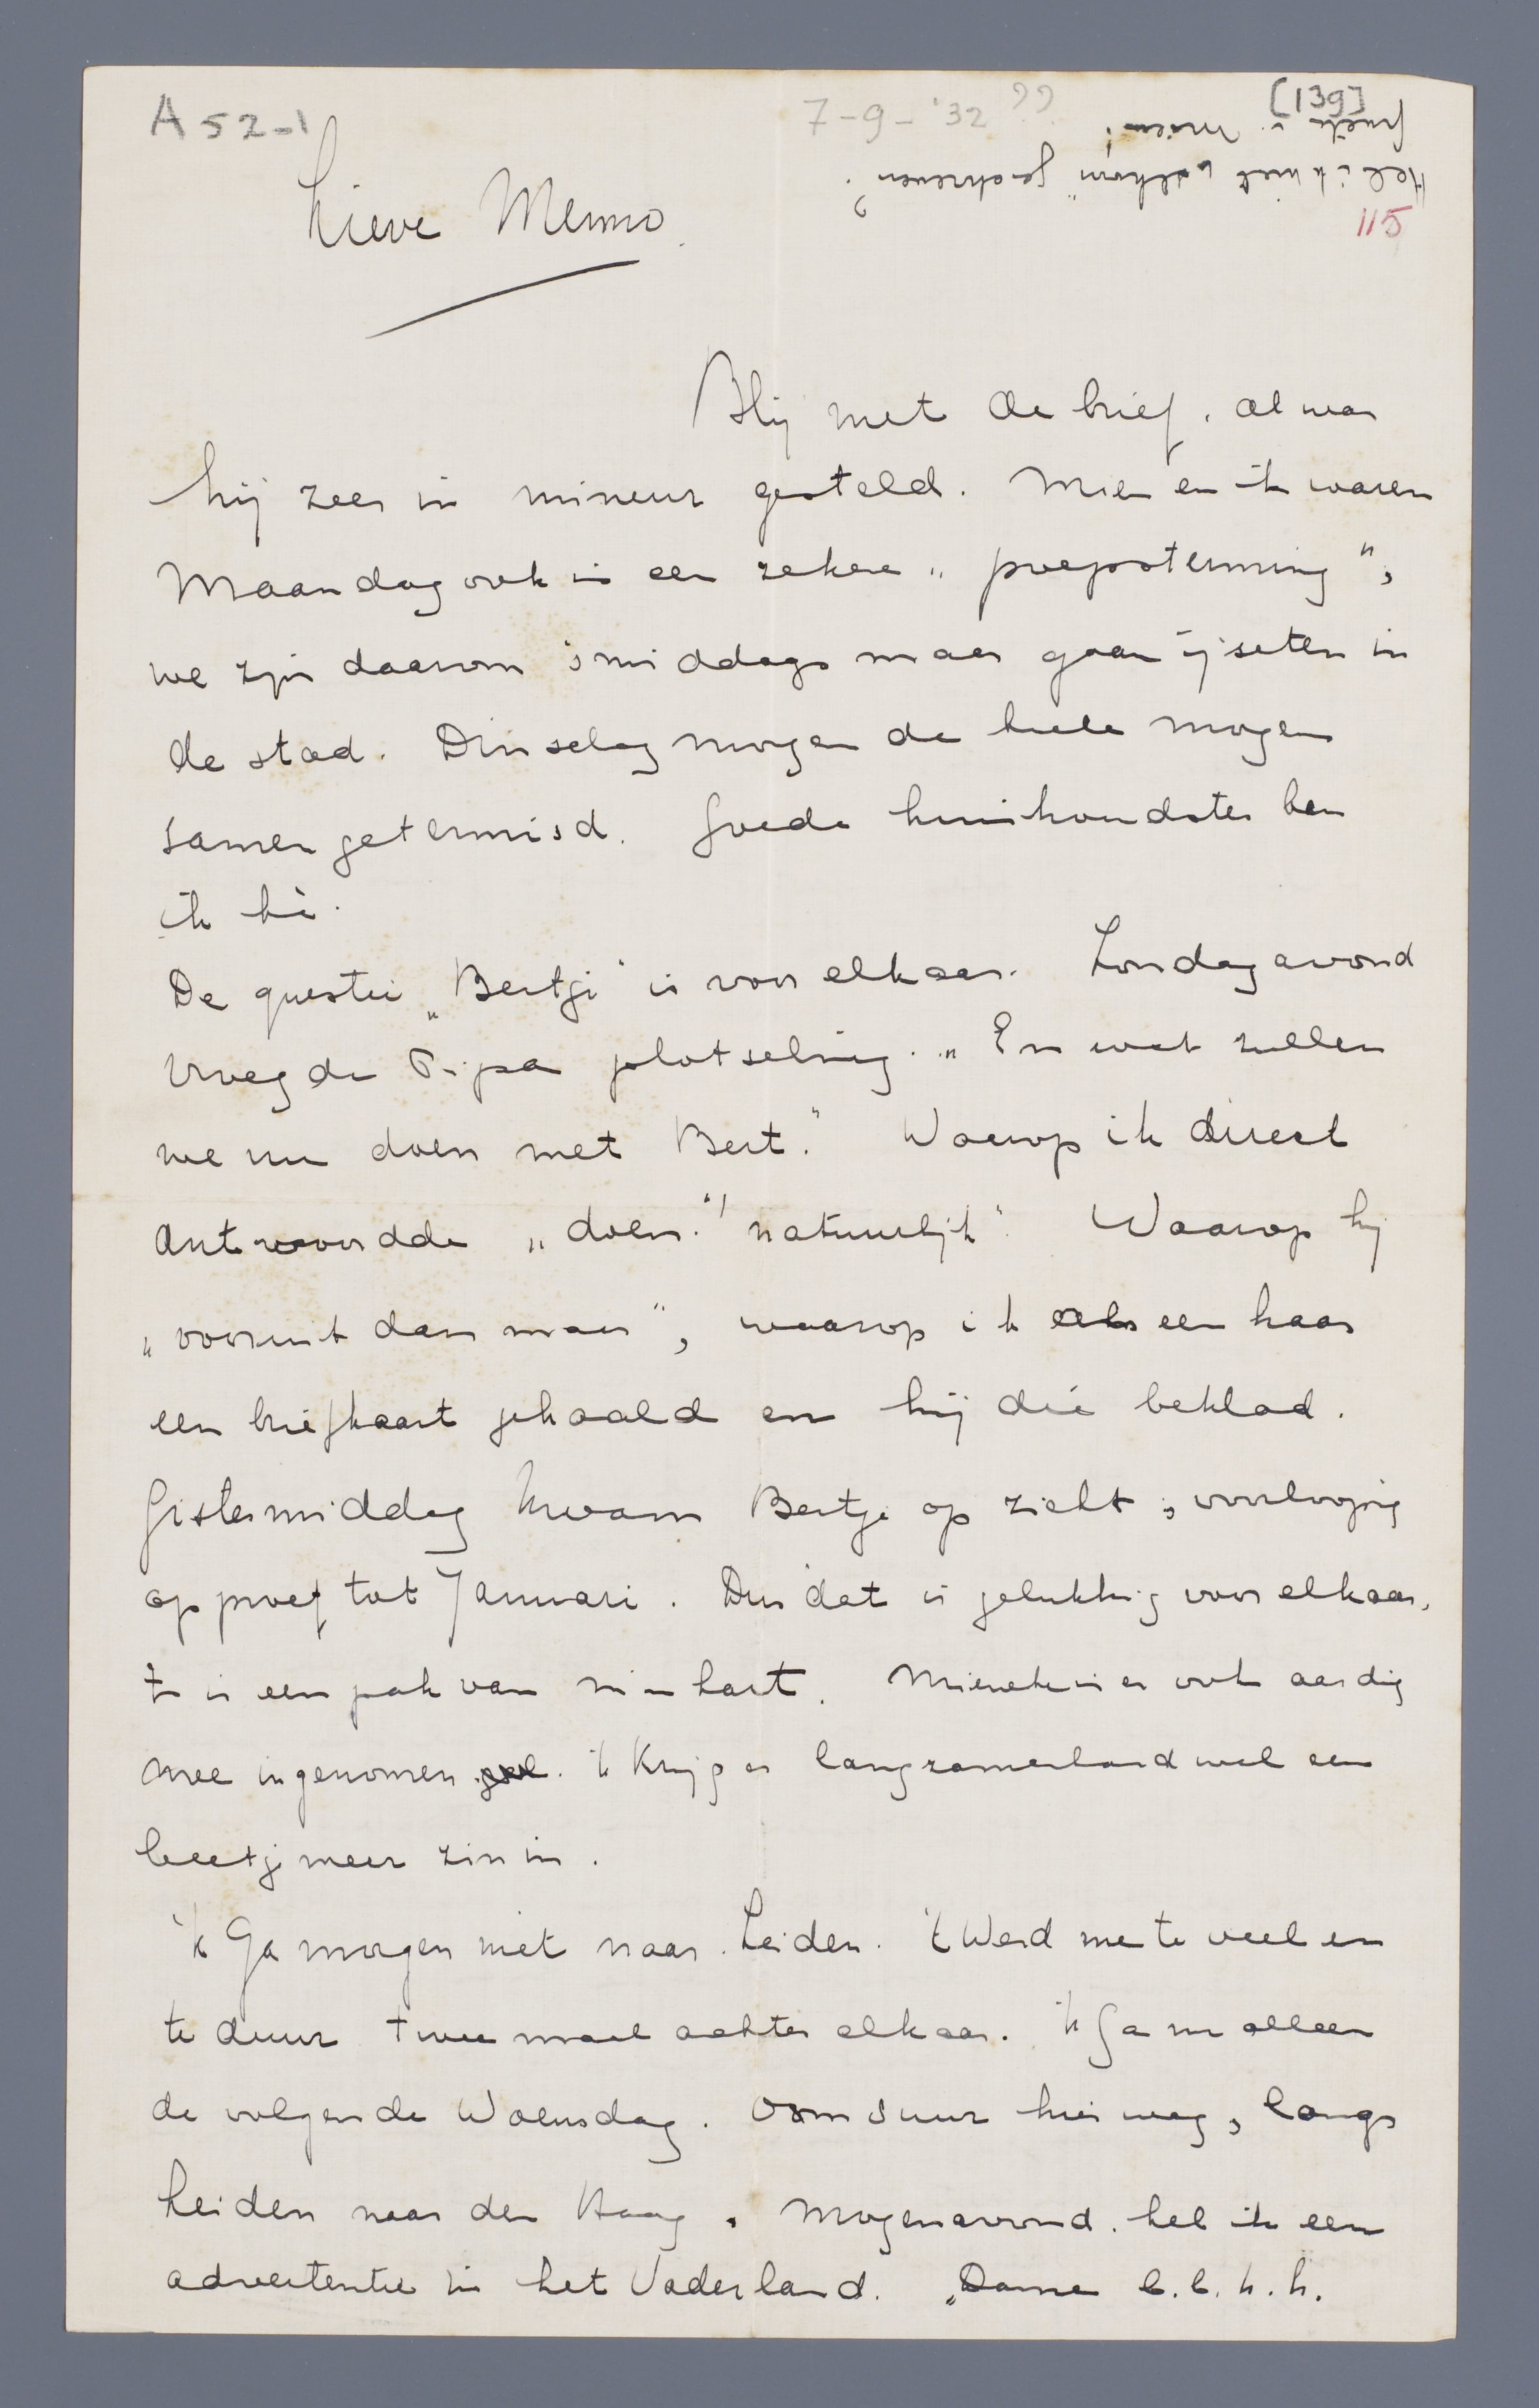 A 52-1
7-9-'32 ??
[139]
Heb ik niet welkom geschreven?
groeten v. Mien!
115
Lieve Menno
Blij met de brief, al was
hij zeer in mineur gesteld. Mien en ik waren
Maandag ook in een zekere "poepstemming",
we zijn daarom 's middags maar gaan ijseten in
de stad. Dinsdagmorgen de heele morgen
samen getennisd. Goede huishoudster ben
ik hè.
De questie „Bertje" is voor elkaar. Zondagavond
vroeg de Pipa plotseling. „En wat zullen
we nu doen met Bert." Waarop ik direct
antwoordde „doen" natuurlijk". Waarop hij
„vooruit dan maar", waarop ik als een haas
een briefkaart gehaald en hij die beklad.
Gistermiddag kwam Bertje op zicht, voorlopig
op proef tot Januari. Dus dat is gelukkig voor elkaar,
't is een pak van m'n hart. Mieneke is er ook aardig
mee ingenomen. 'k Krijg er langzamerhand wel een
beetje meer zin in.
'k Ga morgen niet naar Leiden. 't Werd me te veel en
te duur twee maal achter elkaar. 'k Ga nu alleen
de volgende Woensdag. Om 5 uur hier weg, langs
Leiden naar den Haag. Morgenavond heb ik een
advertentie in het Vaderland. „Dame b.b.h.h.